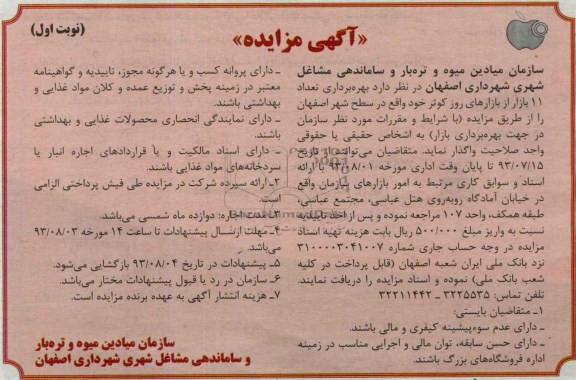 (نوبت اول)
«آگهی مزایده»
سازمان میادین میوه و تره‌بار و ساماندهی مشاغل
شهری شهرداری اصفهان در نظر دارد بهره‌برداری تعداد
۱۱ بازار از بازارهای روز کوثر خود واقع در سطح شهر اصفهان
را از طریق مزایده (با شرایط و مقررات مورد نظر سازمان
در جهت بهره‌برداری بازار) به اشخاص حقیقی یا حقوقی
واجد صلاحیت واگذار نماید. متقاضیان می‌توانند از تاریخ
۹۳/۰۷/۱۵ تا پایان وقت اداری مورخه ۹۳/۰۸/۰۱ با ارائه
اسناد و سوابق کاری مرتبط به امور بازارهای سازمان واقع
در خیابان آمادگاه روبه‌روی هتل عباسی، مجتمع عباسی،
طبقه همکف، واحد ۱۰۷ مراجعه نموده و پس از اخذ تاییدیه
نسبت به واریز مبلغ ۵۰۰/۰۰۰ ریال بابت هزینه تهیه اسناد
مزایده در وجه حساب جاری شماره ۳۱۰۰۰۰۳۰۴۱۰۰۷
نزد بانک ملی ایران شعبه اصفهان (قابل پرداخت در کلیه
شعب بانک ملی) نموده و اسناد مزایده را دریافت نمایند.
تلفن تماس: ۳۲۲۵۵۳۵ - ۳۲۲۱۱۴۴۲
۱ـ متقاضیان بایستی:
ـ دارای عدم سوءپیشینه کیفری و مالی باشند.
ـ دارای حسن سابقه، توان مالی و اجرایی مناسب در زمینه
اداره فروشگاه‌های بزرگ باشند.
ـ دارای پروانه کسب و یا هرگونه مجوز، تاییدیه و گواهینامه
معتبر در زمینه پخش و توزیع عمده و کلان مواد غذایی و
بهداشتی باشند.
ـ دارای نمایندگی انحصاری محصولات غذایی و بهداشتی
باشند.
ـ دارای اسناد مالکیت و یا قراردادهای اجاره انبار یا
سردخانه‌های مواد غذایی باشند.
۲ـ ارائه سپرده شرکت در مزایده طی فیش پرداختی الزامی
است.
۳ـ مدت اجاره: دوازده ماه شمسی می‌باشد.
۴ـ مهلت ارسال پیشنهادات تا ساعت ۱۴ مورخه ۹۳/۰۸/۰۳
می‌باشد.
۵ـ پیشنهادات در تاریخ ۹۳/۰۸/۰۴ بازگشایی می‌شود.
۶ـ سازمان در رد یا قبول پیشنهادات مختار می‌باشد.
۷ـ هزینه انتشار آگهی به عهده برنده مزایده است.
سازمان میادین میوه و تره‌بار
و ساماندهی مشاغل شهری شهرداری اصفهان